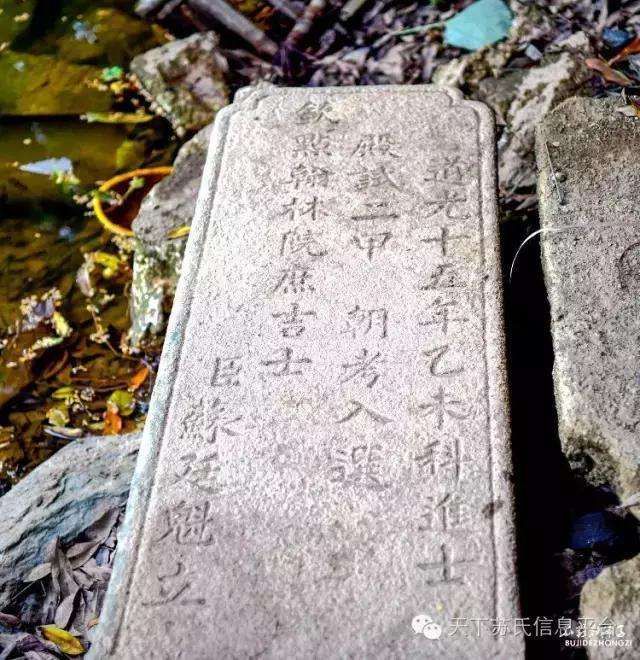 道光十五年乙未科進士
殿試二甲 朝考入選
欽點翰林院庶吉士
臣蘇廷魁立
天下苏氏信息平台
BUJIDEZHONGZI